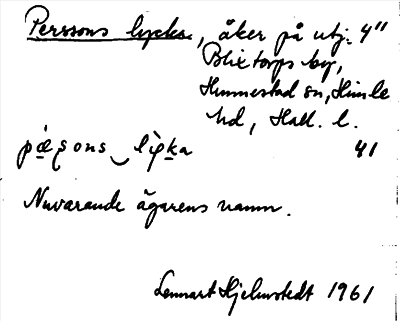 Perssons lycka, åker på utj. 4"
Blixtorps by,
Hunnestad sn, Himle
hd, Hall. l.
pæ̣ʂons‿lỳka 41
Nuvarande ägarens namn.
Lennart Hjelmstedt 1961